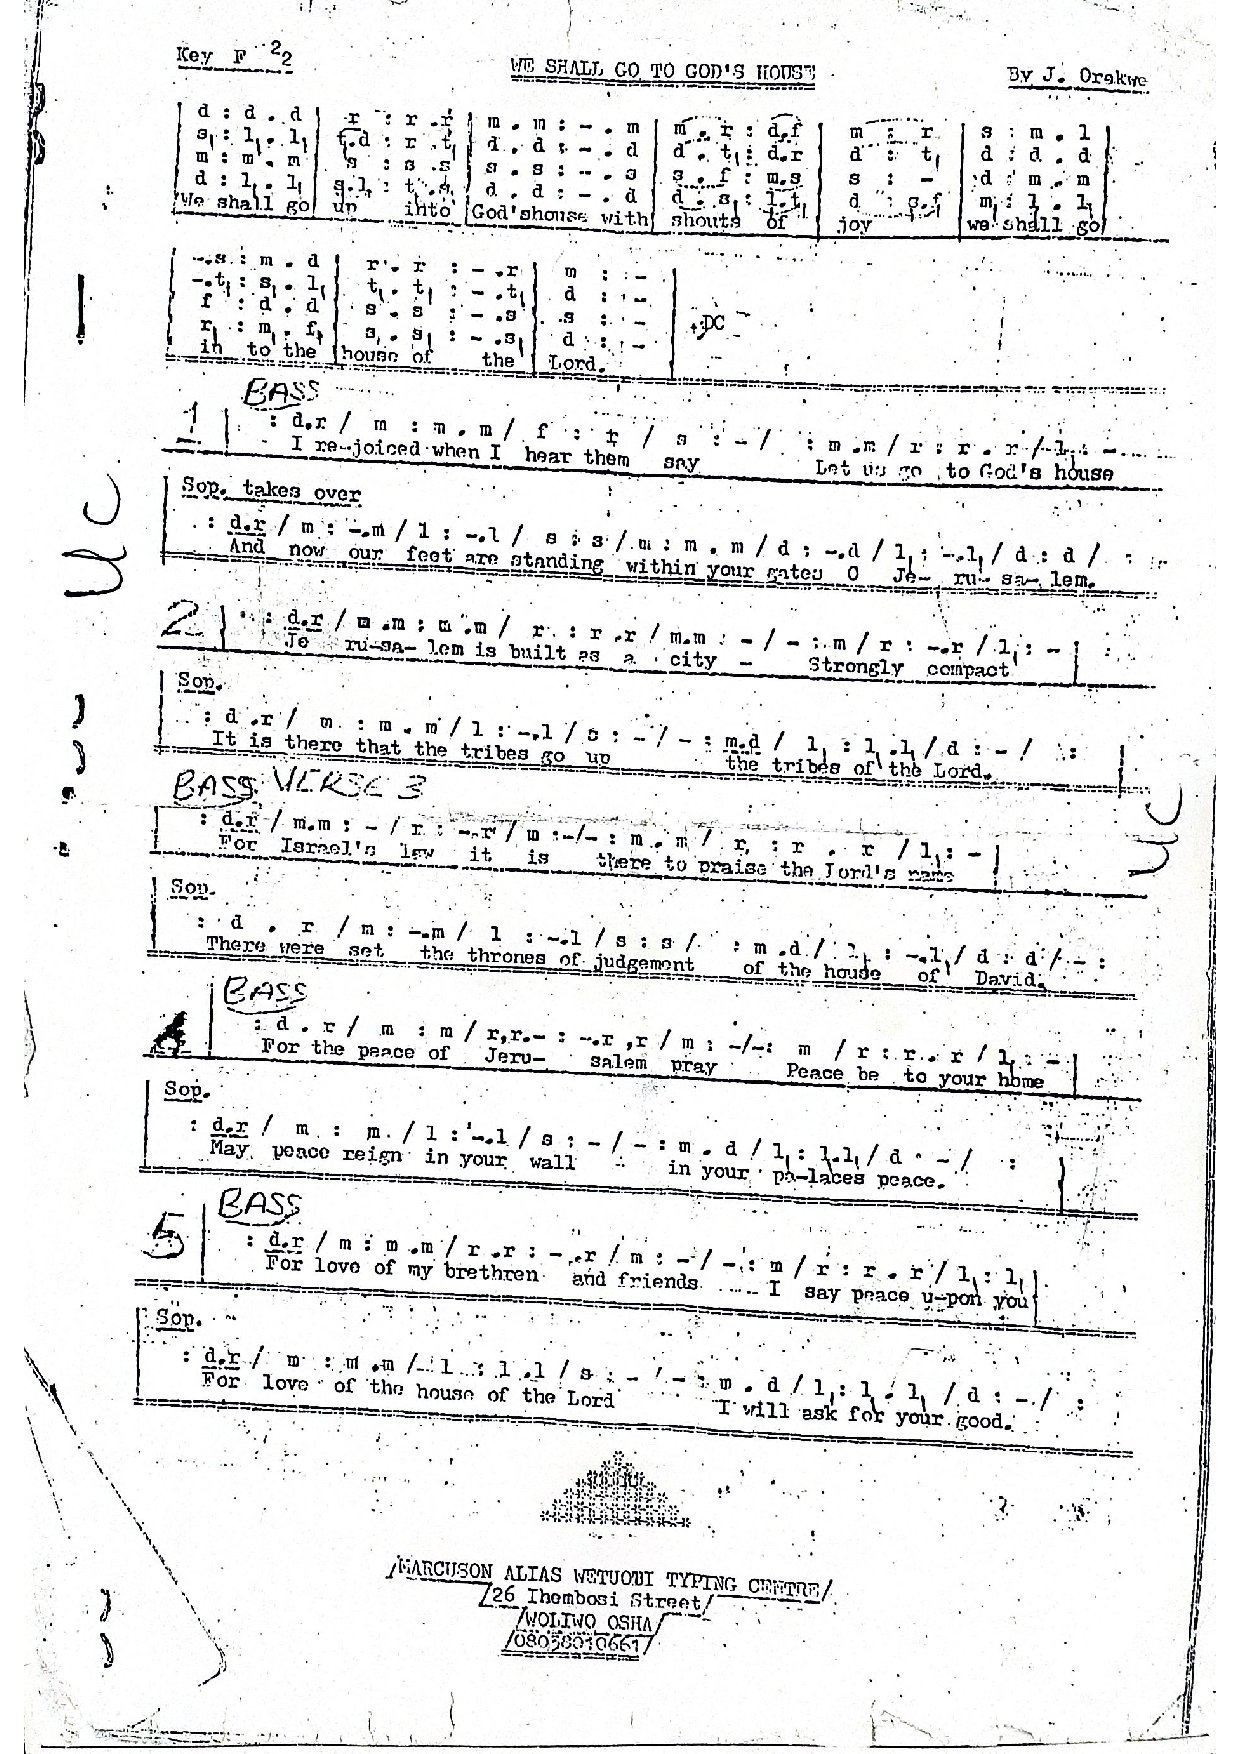 Key F 22
WE SHALL GO TO GOD'S HOUSE
By J. Orakwe
d : d . d | r : r .r | m . m : - . m | m . r : d.f | m : r | s : m . l
s₁ : l₁ . l₁ | f.d : r .t₁ | d . d : - . d | d . t₁ : d.r | d : t₁ | d : d . d
m : m . m | s : s .s | s . s : - . s | s . f : m.s | s : - | d : m . m
d : l₁ . l₁ | s.l : t .s | d . d : - . d | d . s₁ : l.t₁ | d : s.f | m : l . l₁
We shall go up into God's house with shouts of joy we shall go
-.s : m . d | r . r : - .r | m : -
-.t₁ : s₁ . l₁ | t₁ . t₁ : - .t₁ | d : -
f : d . d | s . s : - .s | s : - DC
r₁ : m₁ . f₁ | s₁ . s₁ : - .s₁ | d : -
in to the house of the Lord.
BASS
1 : d.r / m : m . m / f : f / s : - / : m .m / r : r . r / l₁ : -
I re-joiced when I hear them say Let us go to God's house
Sop. takes over
: d.r / m : -.m / l : -.l / s : s / m : m . m / d : -.d / l₁ : -.l₁ / d : d / :
And now our feet are standing within your gates O Je- ru- sa- lem.
2 : d.r / m .m : m .m / r : r .r / m.m : - / - : m / r : -.r / l₁ : -
Je ru-sa- lem is built as a city - Strongly compact
Sop.
: d .r / m : m . m / l : -.l / s : - / - : m.d / l₁ : l₁ .l₁ / d : - / :
It is there that the tribes go up the tribes of the Lord.
BASS VERSE 3
: d.r / m.m : - / r : -.r / m :-/- : m . m / r : r . r / l₁ : -
For Israel's law it is there to praise the Lord's name
Sop.
: d . r / m : -.m / l : -.l / s : s / : m .d / l₁ : -.l₁ / d : d / - :
There were set the thrones of judgement of the house of David.
BASS
4 : d . r / m : m / r,r.- : -.r ,r / m : -/-: m / r : r . r / l₁ : -
For the peace of Jeru- salem pray Peace be to your home
Sop.
: d.r / m : m / l : -.l / s : - / - : m . d / l₁ : l.l₁ / d : - / :
May peace reign in your wall in your pa-laces peace.
BASS
5 : d.r / m : m .m / r .r : - .r / m : -/ -: m / r : r . r / l₁ : l₁
For love of my brethren and friends I say peace u-pon you
Sop.
: d.r / m : m .m / l : l .l / s : - / - : m . d / l₁ : l . l₁ / d : - / :
For love of the house of the Lord I will ask for your good.
/MARCUSON ALIAS WETUOBI TYPING CENTRE/
/26 Ihembosi Street/
/WOLIWO OSHA/
/08038010661/